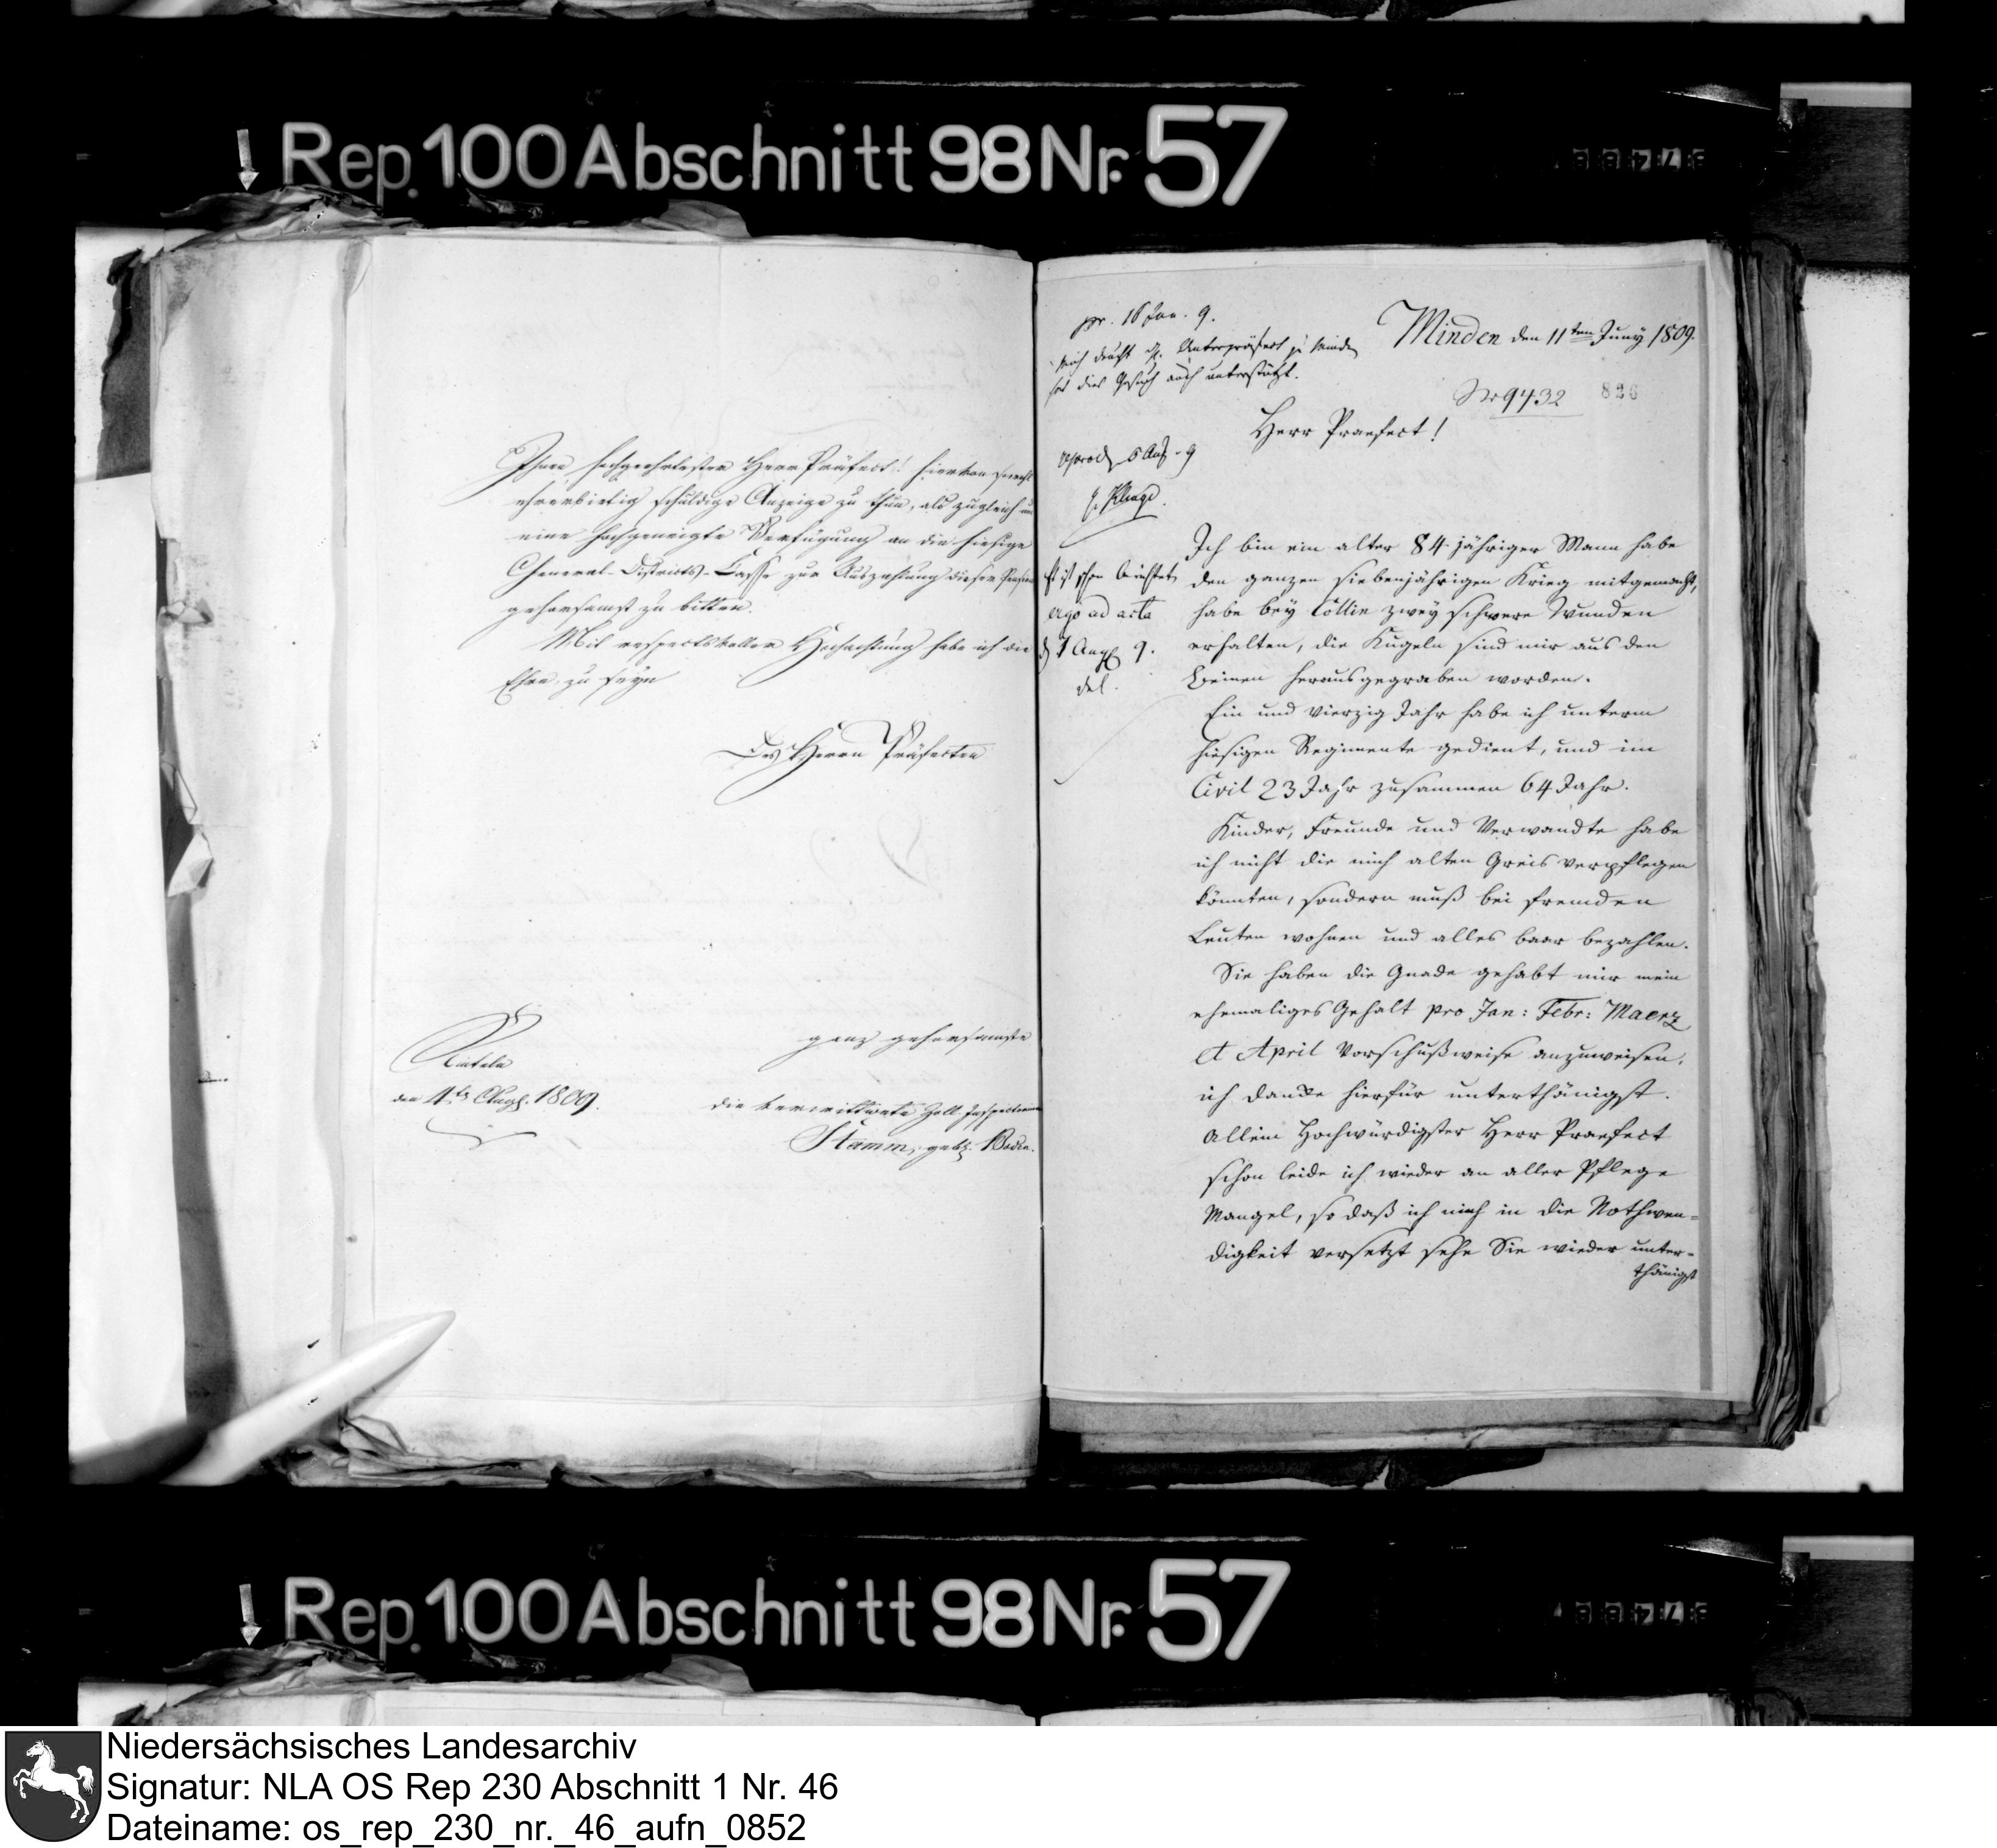 Rep. 100 Abschnitt 98 Nr. 57
Ihnen, hochgeehrtester Herr Präfect! hiervon sowohl
ehrerbietig schuldige Anzeige zu thun, als zugleich um
eine hochgeneigte Verfügung an die hiesige
General-Districts-Casse zur Auszahlung dieser Pension
gehorsamst zu bitten.
Mit respectvoller Hochachtung habe ich die
Ehre, zu seyn
Des Herrn Präfecten
ganz gehorsamste
Rinteln
den 4ten Augst. 1809.
die verwittwete Zoll-Inspectorinn
Stamm, geb. Bodin.
pr. 16 Jun. 9.
Minden den 11ten Juny 1809.
Unterpräfect zu Minden
hat dies Gesuch auch unterstützt.
No 9432
826
Herr Praefect!
reprod. 6 Aug. 9
Ich bin ein alter 84 jähriger Mann habe
den ganzen siebenjährigen Krieg mitgemacht,
habe bey Collin zwey schwere Wunden
erhalten, die Kugeln sind mir aus den
Beinen herausgegraben worden.
Ein und vierzig Jahr habe ich unterm
hiesigen Regimente gedient, und im
Civil 23 Jahr zusammen 64 Jahr.
Kinder, Freunde und Verwandte habe
ich nicht die mich alten Greis verpflegen
könnten, sondern muß bei fremden
Leuten wohnen und alles baar bezahlen.
Sie haben die Gnade gehabt mir mein
ehemaliges Gehalt pro Jan: Febr: Maerz
et April Vorschußweise anzuweisen,
ich danke hierfür unterthänigst.
Allein Hochwürdigster Herr Praefect
schon leide ich wieder an aller Pflege
Mangel, so daß ich mich in die Nothwen=
digkeit versetzt sehe Sie wieder unter=
thänigst
ist schon berichtet
ergo ad acta
d 7 Aug 9.
Rep. 100 Abschnitt 98 Nr. 57
Niedersächsisches Landesarchiv
Signatur: NLA OS Rep 230 Abschnitt 1 Nr. 46
Dateiname: os_rep_230_nr._46_aufn_0852